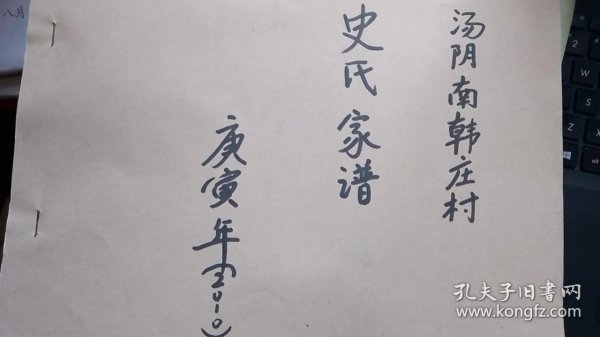 汤阴南韩庄村
史氏家谱
庚寅年(2010)
八月
孔夫子旧书网
www.kongfz.com